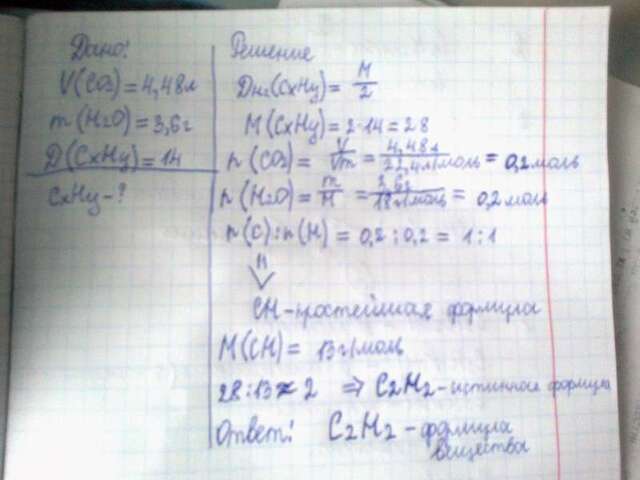 Дано:
V(CO2) = 4,48л
m(H2O) = 3,6г
D(CxHy) = 14
CxHy - ?
Решение
DH2(CxHy) = M/2
M(CxHy) = 2·14 = 28
n(CO2) = V/Vm = 4,48л/22,4л/моль = 0,2моль
n(H2O) = m/M = 3,6г/18г/моль = 0,2моль
n(C):n(H) = 0,2:0,2 = 1:1
CH-простейшая формула
M(CH) = 13г/моль
28:13≈2 ⇒ C2H2-истинная формула
Ответ: C2H2 - формула
вещества